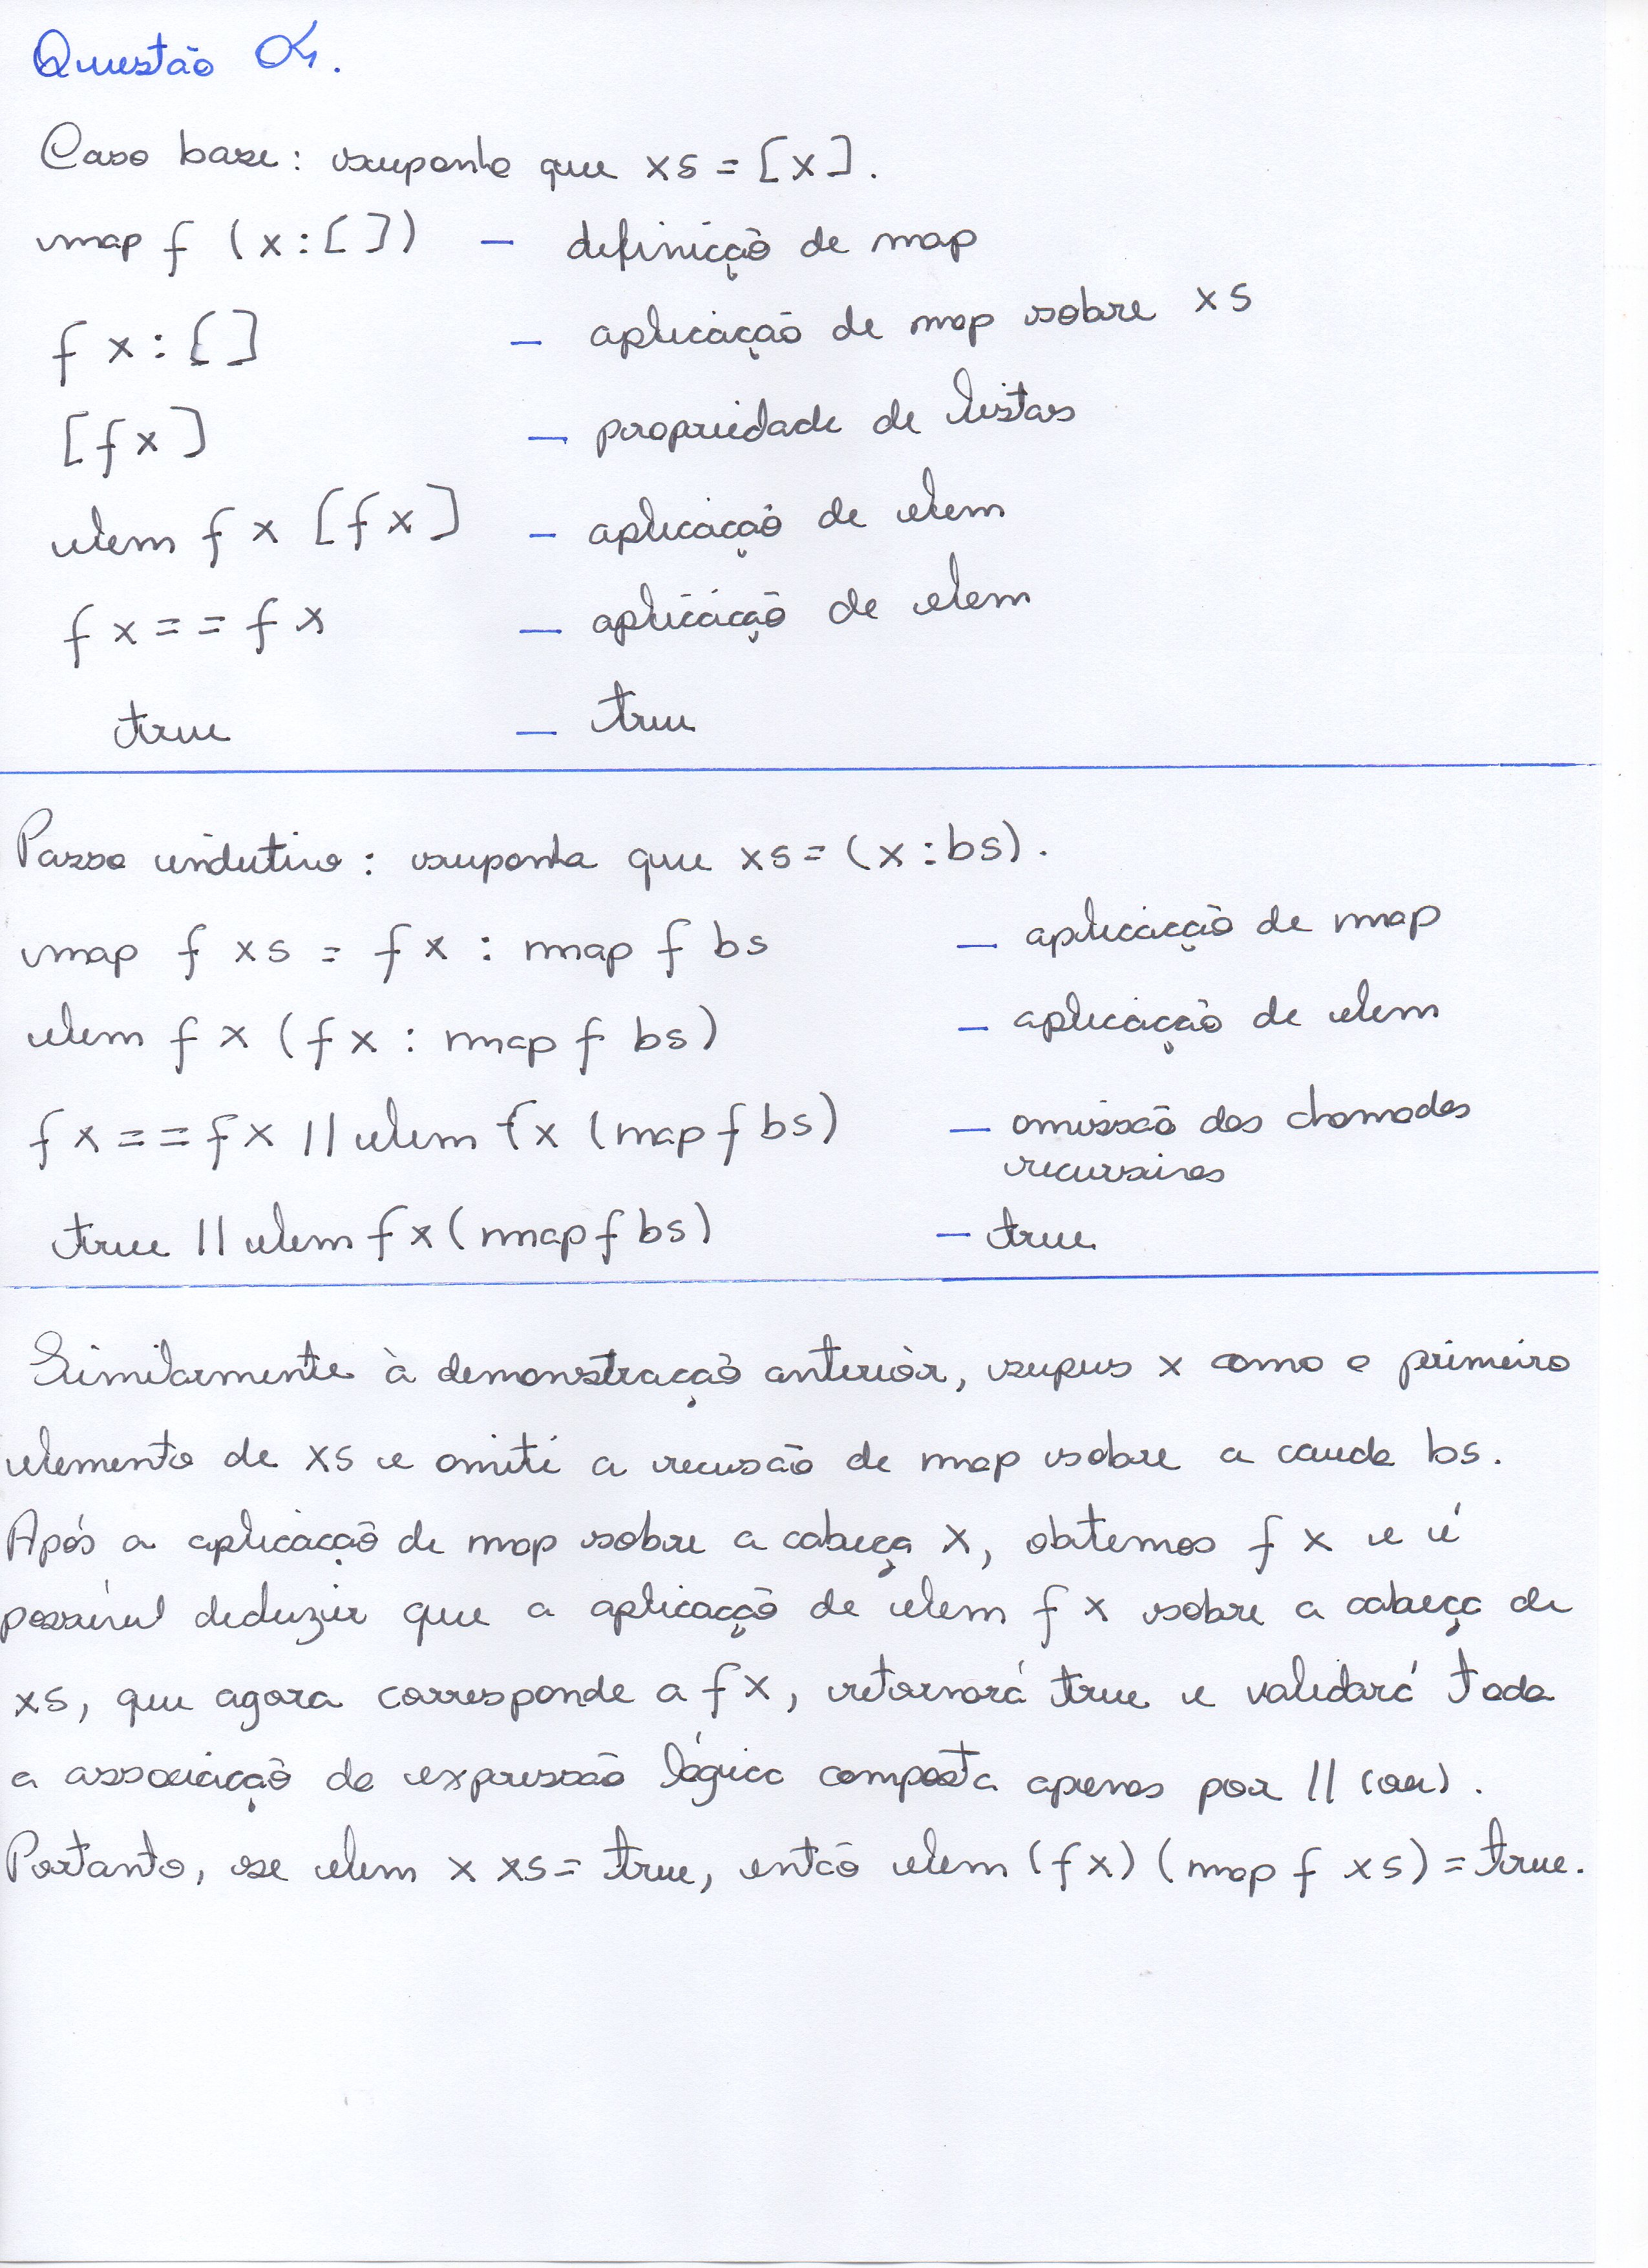 Questão 04.
Caso base: suponha que xs = [x].
map f (x:[]) — definição de map
f x:[] — aplicação de map sobre xs
[f x] — propriedade de listas
elem f x [f x] — aplicação de elem
f x == f x — aplicação de elem
true — true
Passo indutivo: suponha que xs = (x:bs).
map f xs = f x : map f bs — aplicação de map
elem f x (f x : map f bs) — aplicação de elem
f x == f x || elem f x (map f bs) — omissão das chamadas
recursivas
true || elem f x (map f bs) — true
Similarmente à demonstração anterior, supus x como o primeiro
elemento de xs e omiti a recusão de map sobre a cauda bs.
Após a aplicação de map sobre a cabeça x, obtemos f x e é
possível deduzir que a aplicação de elem f x sobre a cabeça de
xs, que agora corresponde a f x, retornará true e validará toda
a associação da expressão lógica composta apenas por || (ou).
Portanto, se elem x xs = true, então elem (f x) (map f xs) = true.